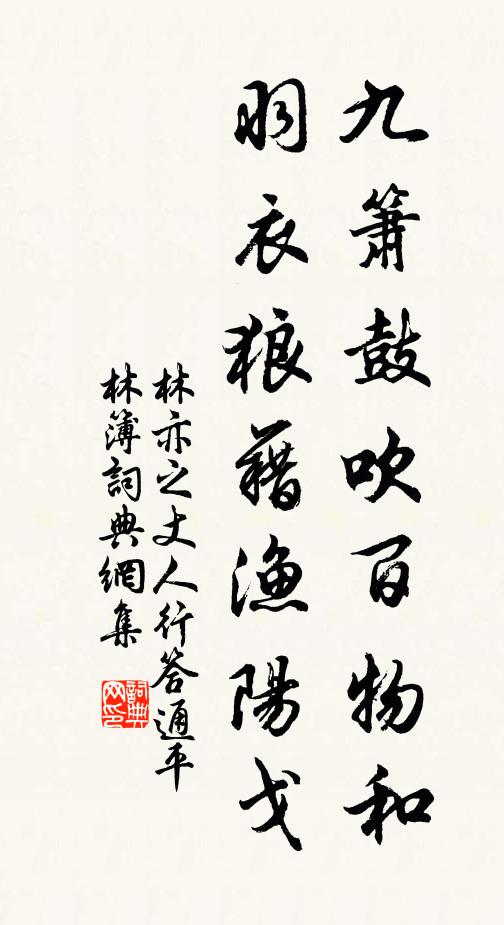 九簫鼓吹百物和
羽衣狼藉漁陽戈
林亦之丈人行答通平
林簿詞典網集
詞典
网印